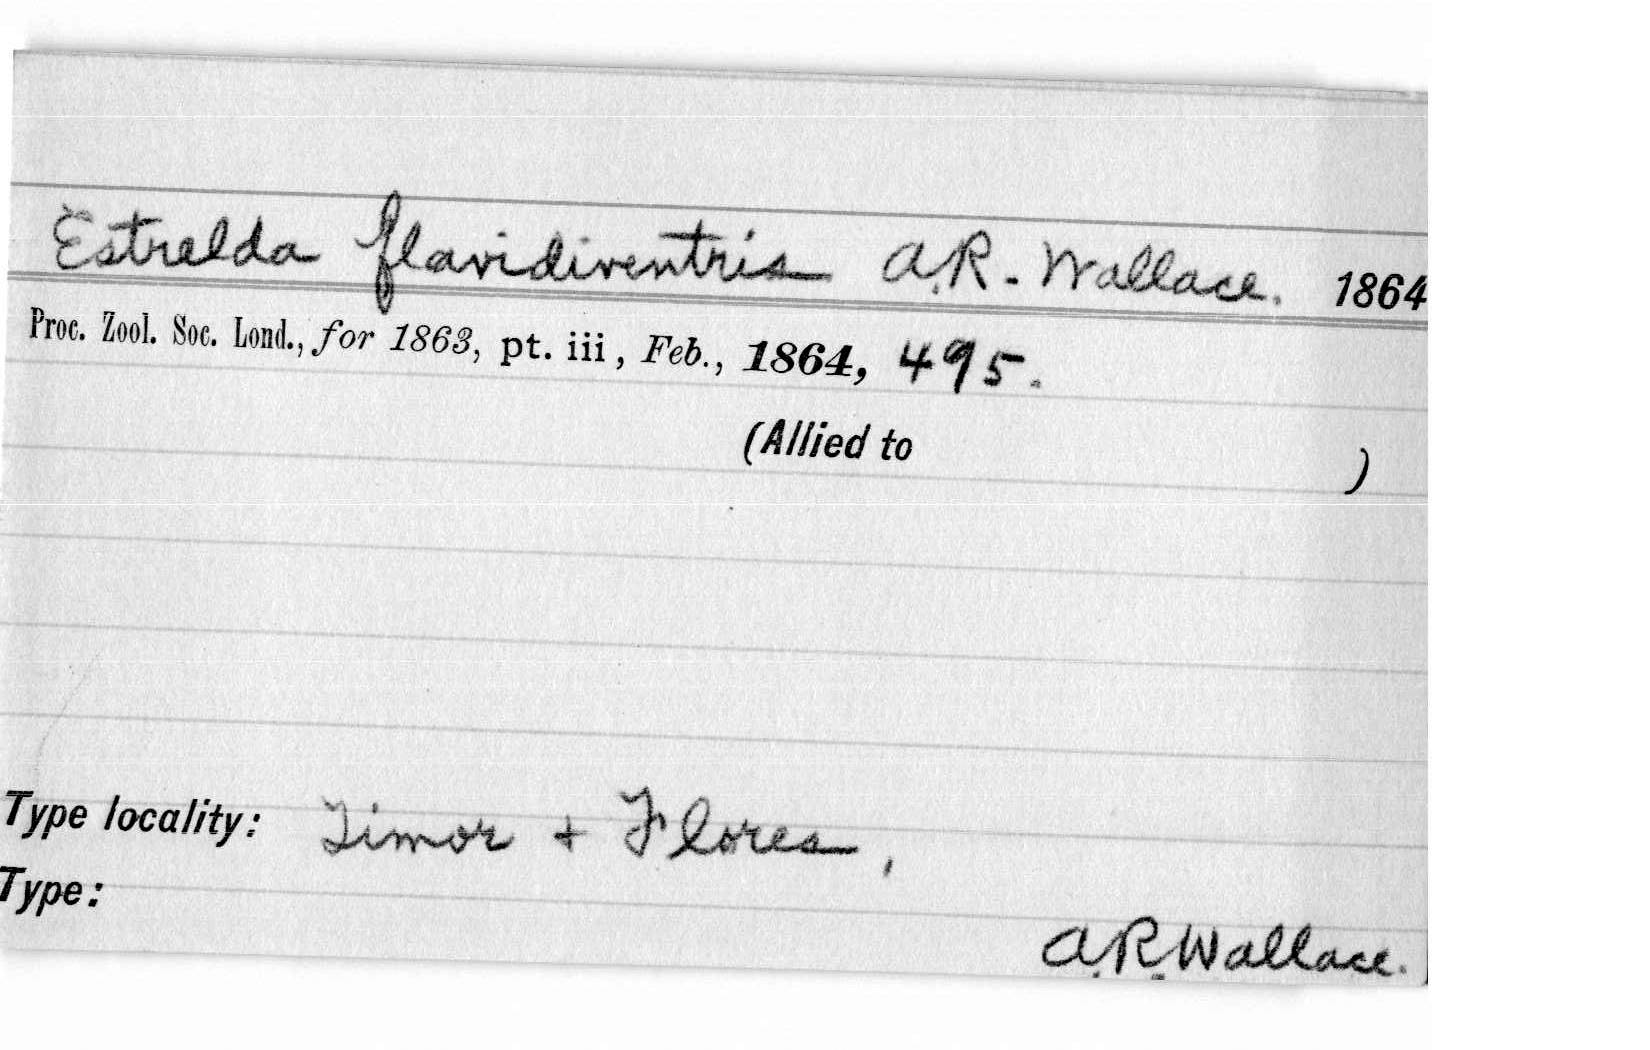 Estrelda flavidiventris A.R. Wallace. 1864
Proc. Zool. Soc. Lond., for 1863, pt. iii, Feb., 1864, 495.
(Allied to )
Type locality: Timor + Flores,
Type:
A.R. Wallace.